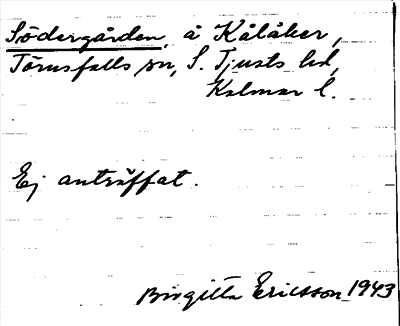 Södergården, å Kålåker,
Törnsfalls sn, S. Tjusts hd,
Kalmar l.
Ej anträffat.
Birgitta Ericsson 1943